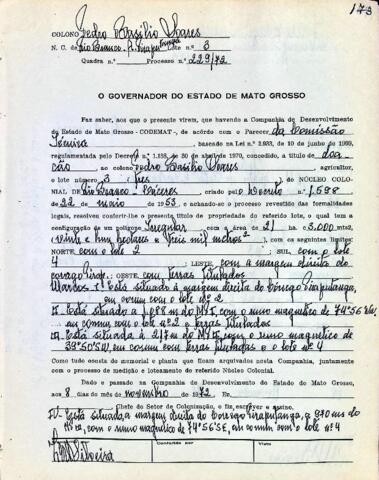 173
COLONO Pedro Basilio Soares
N. C. de Rio Branco Lote n.º 3
Quadra n.º Processo n.º 229/72
O GOVERNADOR DO ESTADO DE MATO GROSSO
Faz saber, aos que o presente virem, que havendo a Companhia de Desenvolvimento
do Estado de Mato Grosso - CODEMAT -, de acôrdo com o Parecer da Comissão
Técnica, buscado na Lei n.º 2.933, de 10 de junho de 1969,
regulamentada pelo Decreto n.º 1.158, de 30 de abril de 1970, concedido, a título de doa
ção ao colono Pedro Basilio Soares agricultor,
o lote número 3 (três) do NÚCLEO COLO-
NIAL DE Rio Branco Cáceres criado pelo Decreto n.º 1.598
de 22 de maio de 1953, e achando-se o processo revestido das formalidades
legais, resolves conferir-lhe o presente título de propriedade do referido lote, o qual tem a
configuração de um polígono Irregular com a área de 21 ha 3.000 mts2
(vinte e hum hectares e três mil metros2), com os seguintes limites:
NORTE com o lote 2 ; SUL, com o lote
4 ; LESTE, com a margem direita do
corrego ; OESTE, com terras tituladas
Marcos: 1º Está situado à margem direita do Córrego Pirapitanga,
em comum com o lote nº 2.
Está situado a 1.088 m do MPI, com o rumo magnético de 74º56'SW,
em comum com o lote nº 2 e terras tituladas
Está situado a 217 m do com o rumo magnético de
39º50'SW, em comum com terras tituladas e o lote nº 4
Como tudo escota de memorial e planta que ficam arquivados nesta Companhia, juntamente
com o processo de medição e loteamento do referido Núcleo Colonial.
Dado e passado na Companhia de Desenvolvimento do Estado de Mato Grosso,
aos 8 dias do mês de novembro de 1972. Eu.
Chefe do Setor de Colonização, o fiz, escrever e assino.
IV - Está situado a margem direita do Corrego Pirapitanga, a 970 ms do
com o rumo magnético de 74º56'SE, em comum com o lote nº 4
Silveira
Conferido por Visto